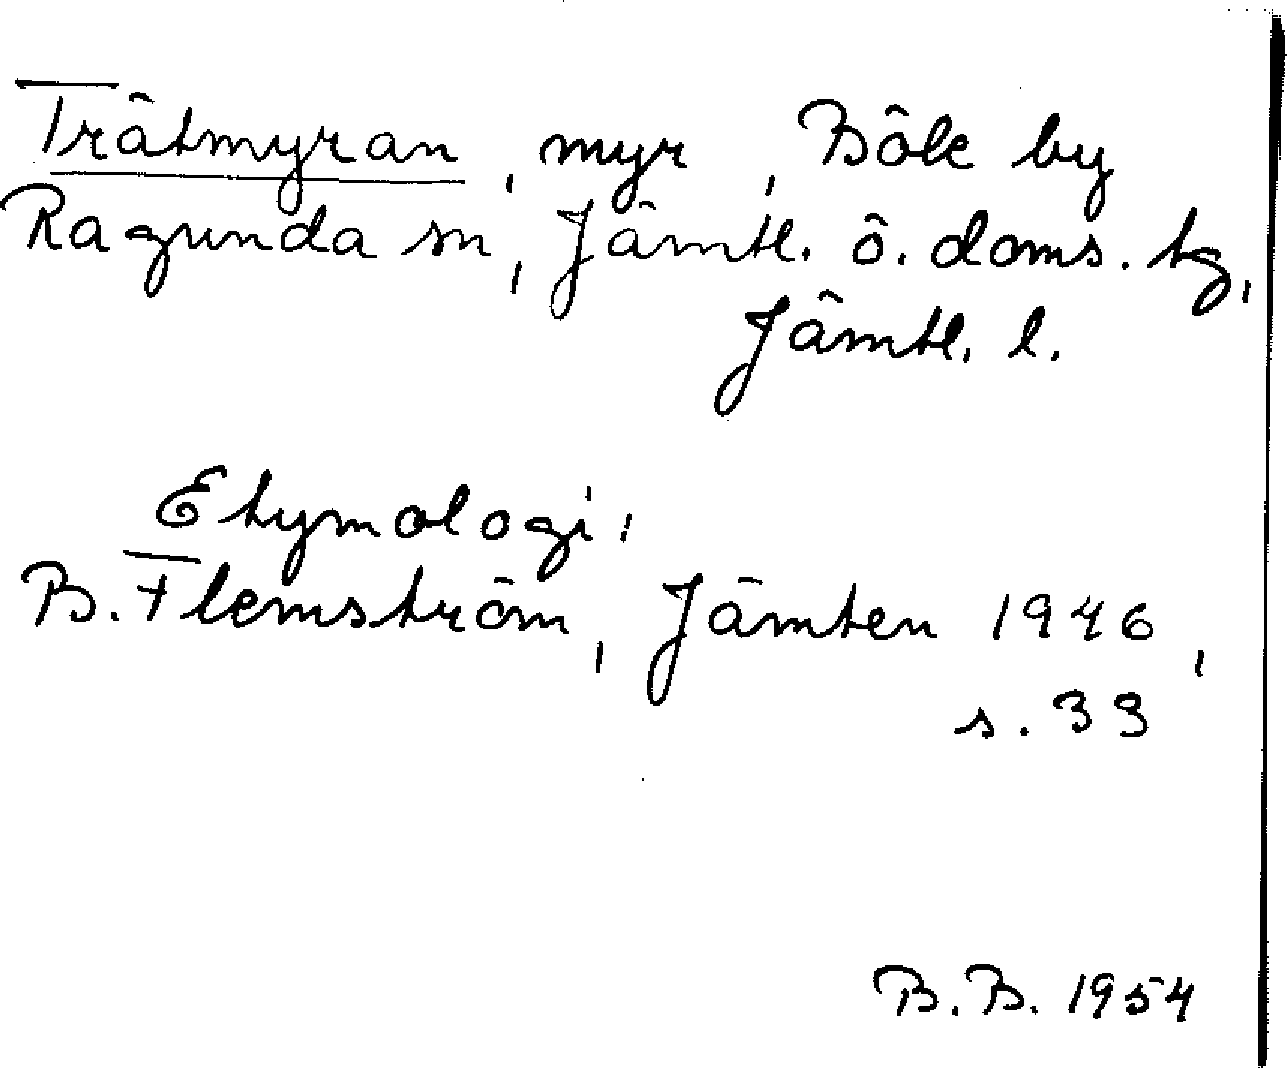 Trätmyran, myr, Böle by
Ragunda sn, Jämtl. ö. doms. tg,
Jämtl. l.
Etymologi:
B. Flemström, Jämten 1946,
s. 39
B.B. 1954